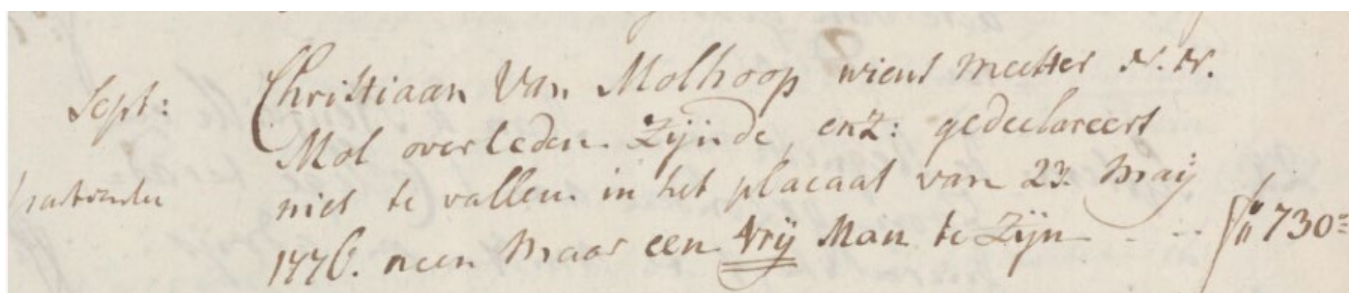 Sept:
Christiaan Van Molhoop wiens Meester N. N.
Mol overleden Zijnde, enz: gedeclareert
niet te vallen in het placaat van 23. Maij
1776. neen Maar een Vrij Man te Zijn - - - 730=